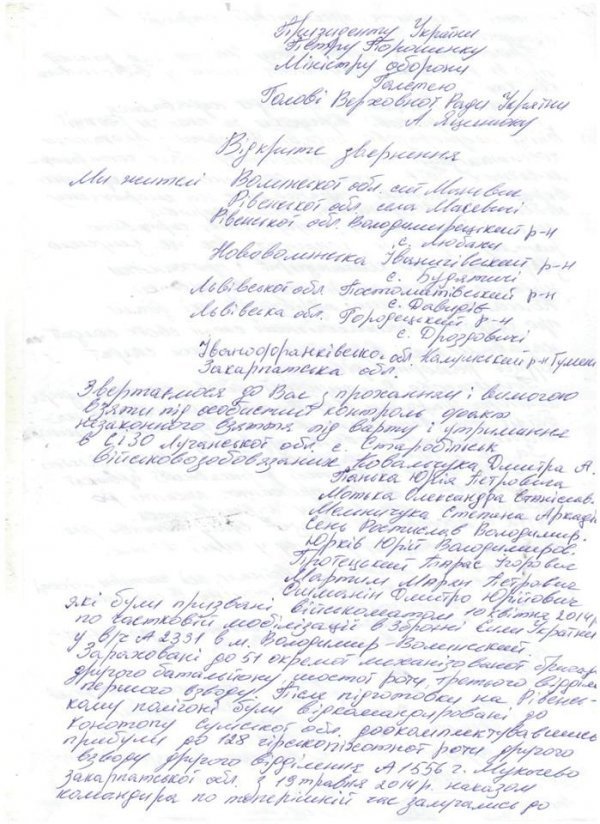 Президенту України
Петру Порошенку
Міністру оборони
Гелетею
Голові Верховної Ради України
А. Яценюку
Відкрите звернення
Ми жителі Волинскої обл. смт Маневич
Рівенскої обл. села Маюничі
Рівенскої обл. Володимирецкий р-н
с. Любахи
Нововолинска Іваничівский р-н
с. Будятичі
Львівської обл. Пустомитівский р-н
с. Давидів
Львівска обл. Городецкий р-н
с. Дроздовичі
Іванофранківська обл. Калуский р-н
Закарпатська обл.
Звертаємося до Вас з проханням і вимогою
взяти під особистий контроль факт
незаконного взяття під варту і утримання
в СІЗО Луганської обл. с. Старобільск
військовозобовязаних Ковальчука Дмитра А.
Панька Юрія Петровича
Мотька Олександра Станіслав.
Мельничука Степана Аркадій
Сень Ростислав Володимир.
Юрків Юрій Володимиров.
Протецький Тарас Ігорович
Мартин Мар'ян Петрович
Шиманін Дмитро Юрійович
які були призвані військоматом 10 квітня 2014 р
по частковій мобілізації в Збройні Сили України
у в/ч А 2331 в м. Володимир-Волинский.
Зараховані до 51 окремої механізованої бригади
другого батальйону шостої роти, третього відділен
першого взводу. Після підготовки на Рівенс-
кому полігоні були відкомандировані до
Конотопу Сумскої обл. доокомплектувавшись
прибули до 128 гірскопіхотної роти другого
взводу другого відділення А 1556 г. Мукачево
Закарпатської обл. з 19 травня 2014 р. наказом
командира по теперішній час залучались до